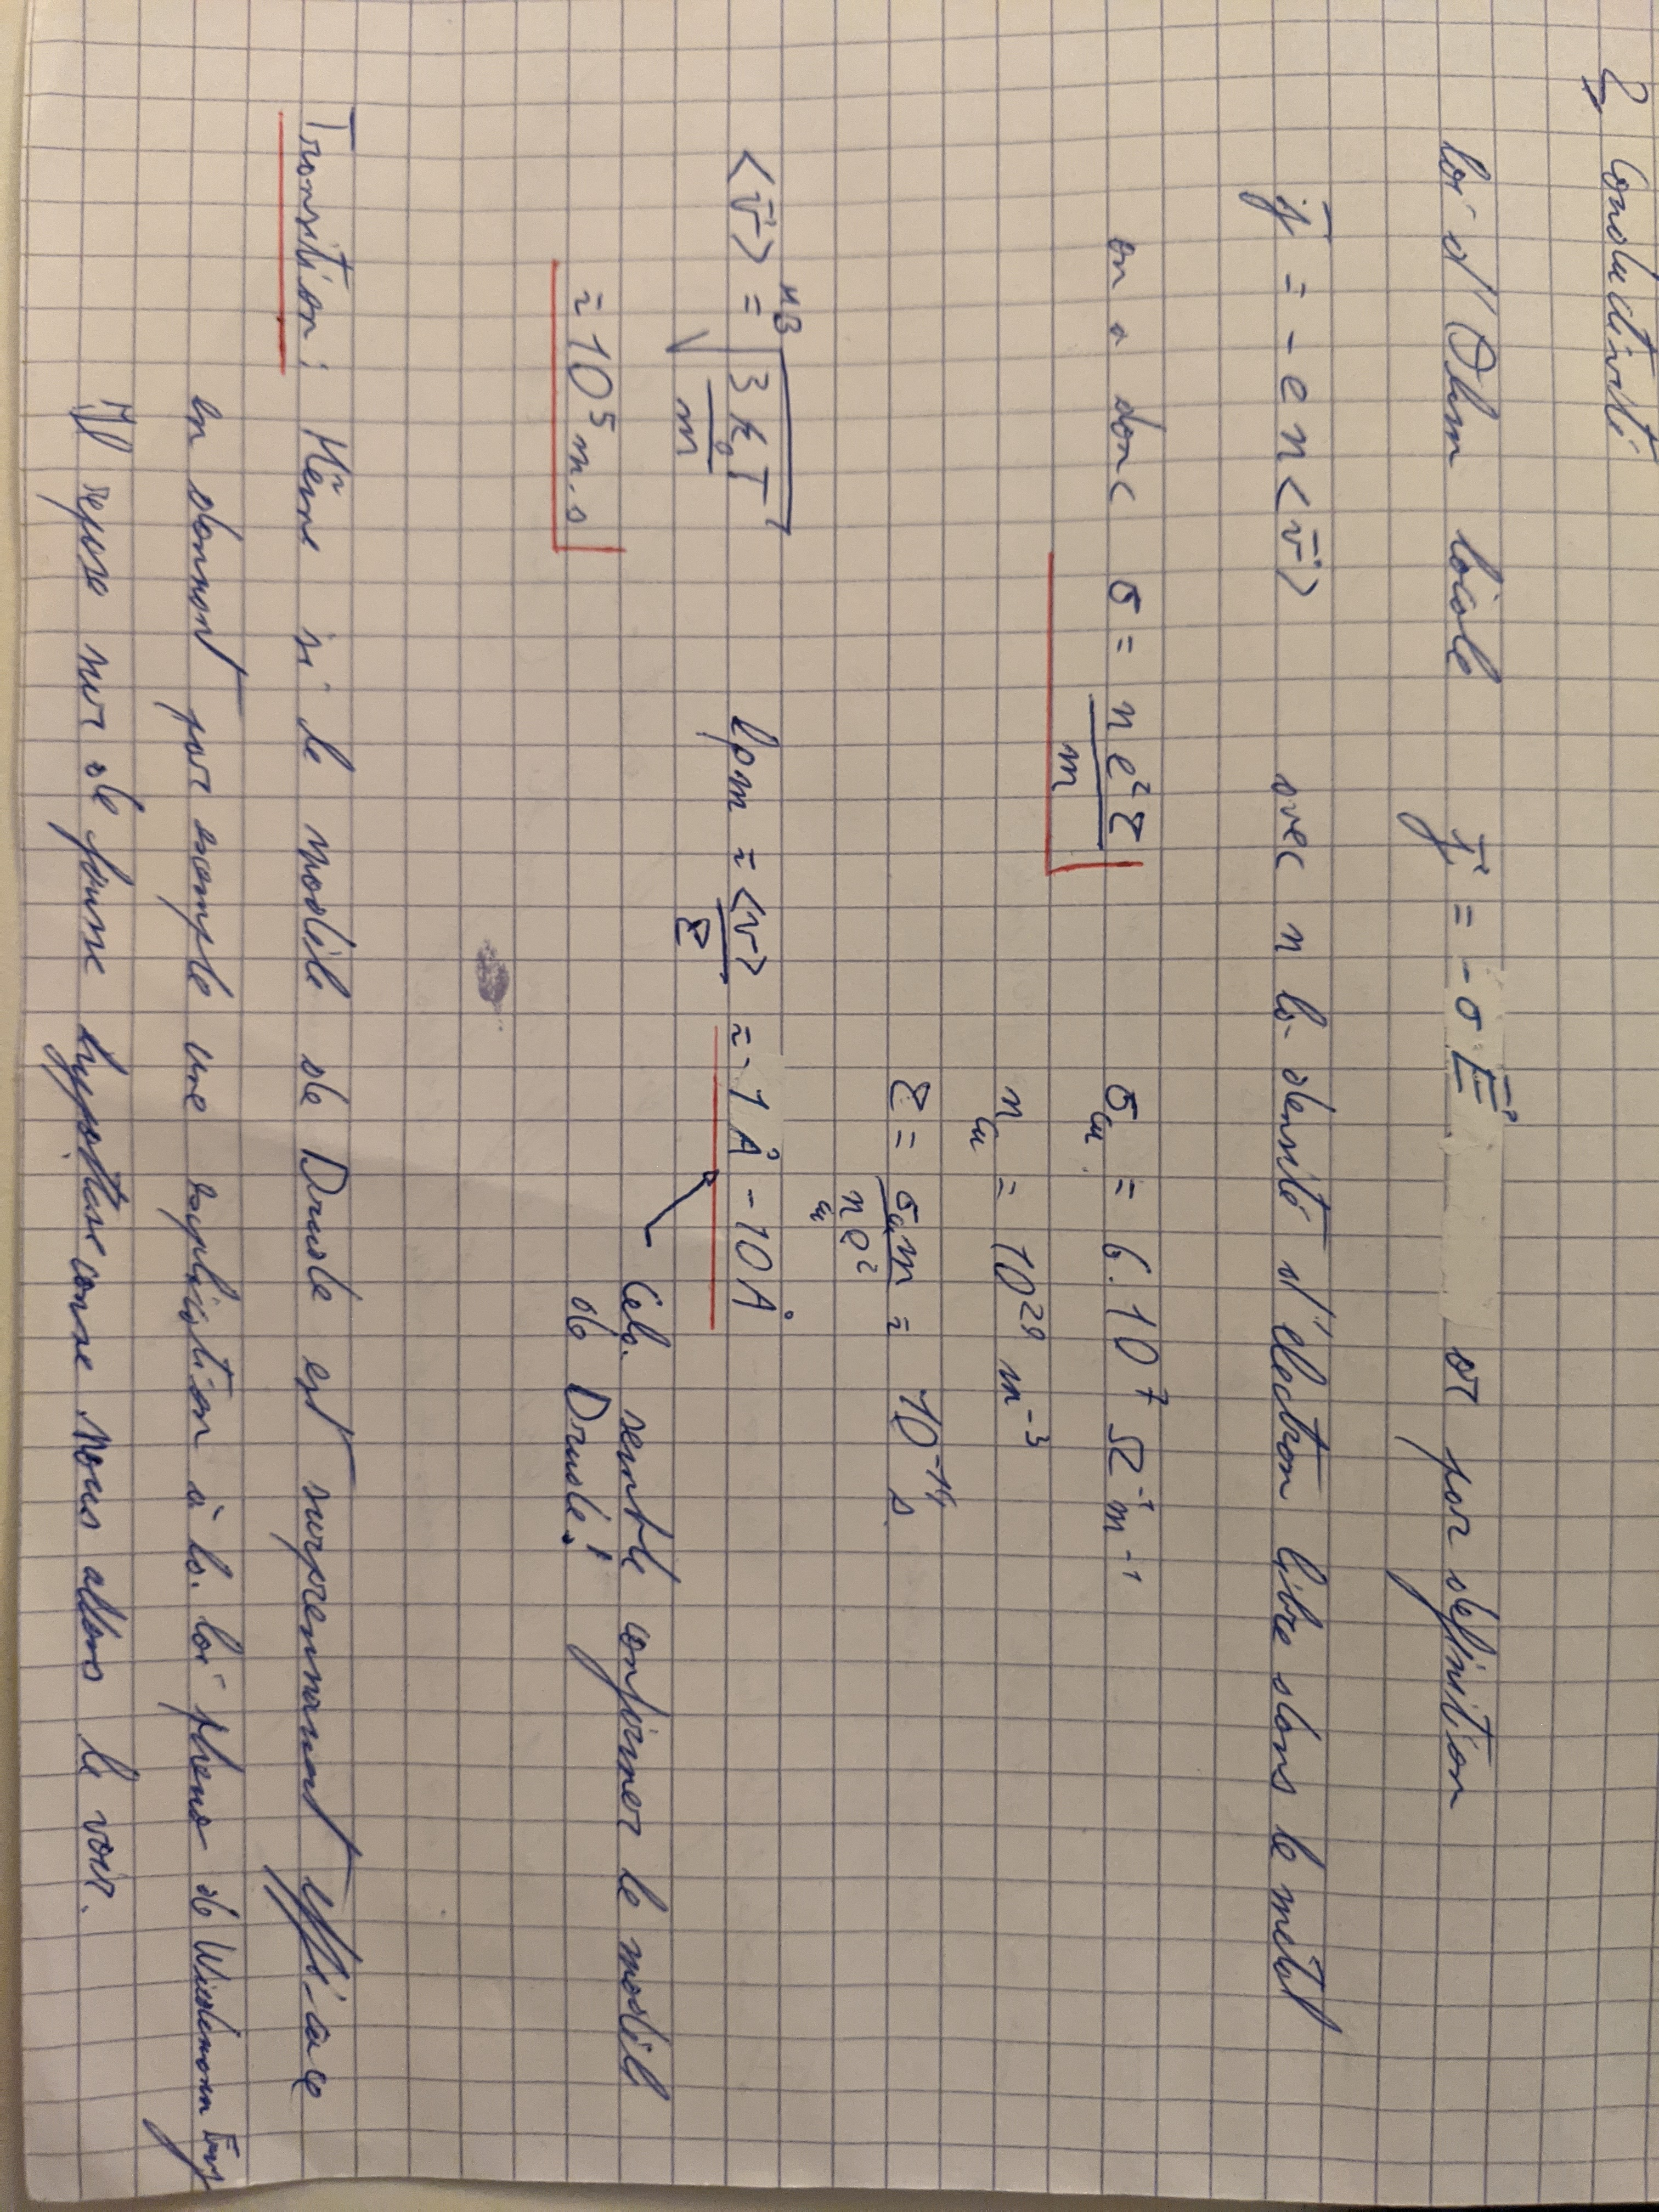 2) Conductivité
loi d'Ohm locale j⃗ = -σ E⃗ or par définition
j⃗ = - e n <v⃗> avec n la densité d'électron libre dans le métal
on a donc σ = n e² τ / m σ_Cu = 6.10⁷ Ω⁻¹ m⁻¹
n_Cu = 10²⁹ m⁻³
τ = σ_Cu m / n_Cu e² = 10⁻¹⁴ s
<v⃗> =^MB √(3 k_B T / m) lpm = <v> / τ ≈ 1 Å - 10 Å
≈ 10⁵ m.s Cela semble confirmer le modèle
de Drude !
Transition : Même si le modèle de Drude est surprennament efficace
en donnant par exemple une explication à la loi phéno de Wiedemann Franz
Il repose sur de fausse hypothèse comme nous allons le voir.